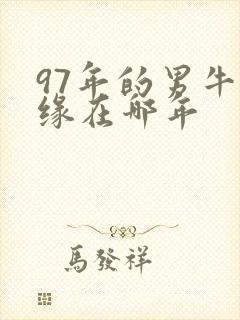 97年的男牛
缘在哪年
馬發祥